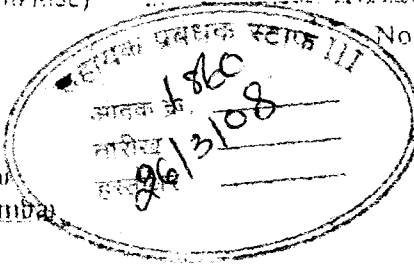 No
सहायक प्रबंधक स्टाफ III
आवक क्र. 1860
तारीख 26/3/08
हस्ताक्षर